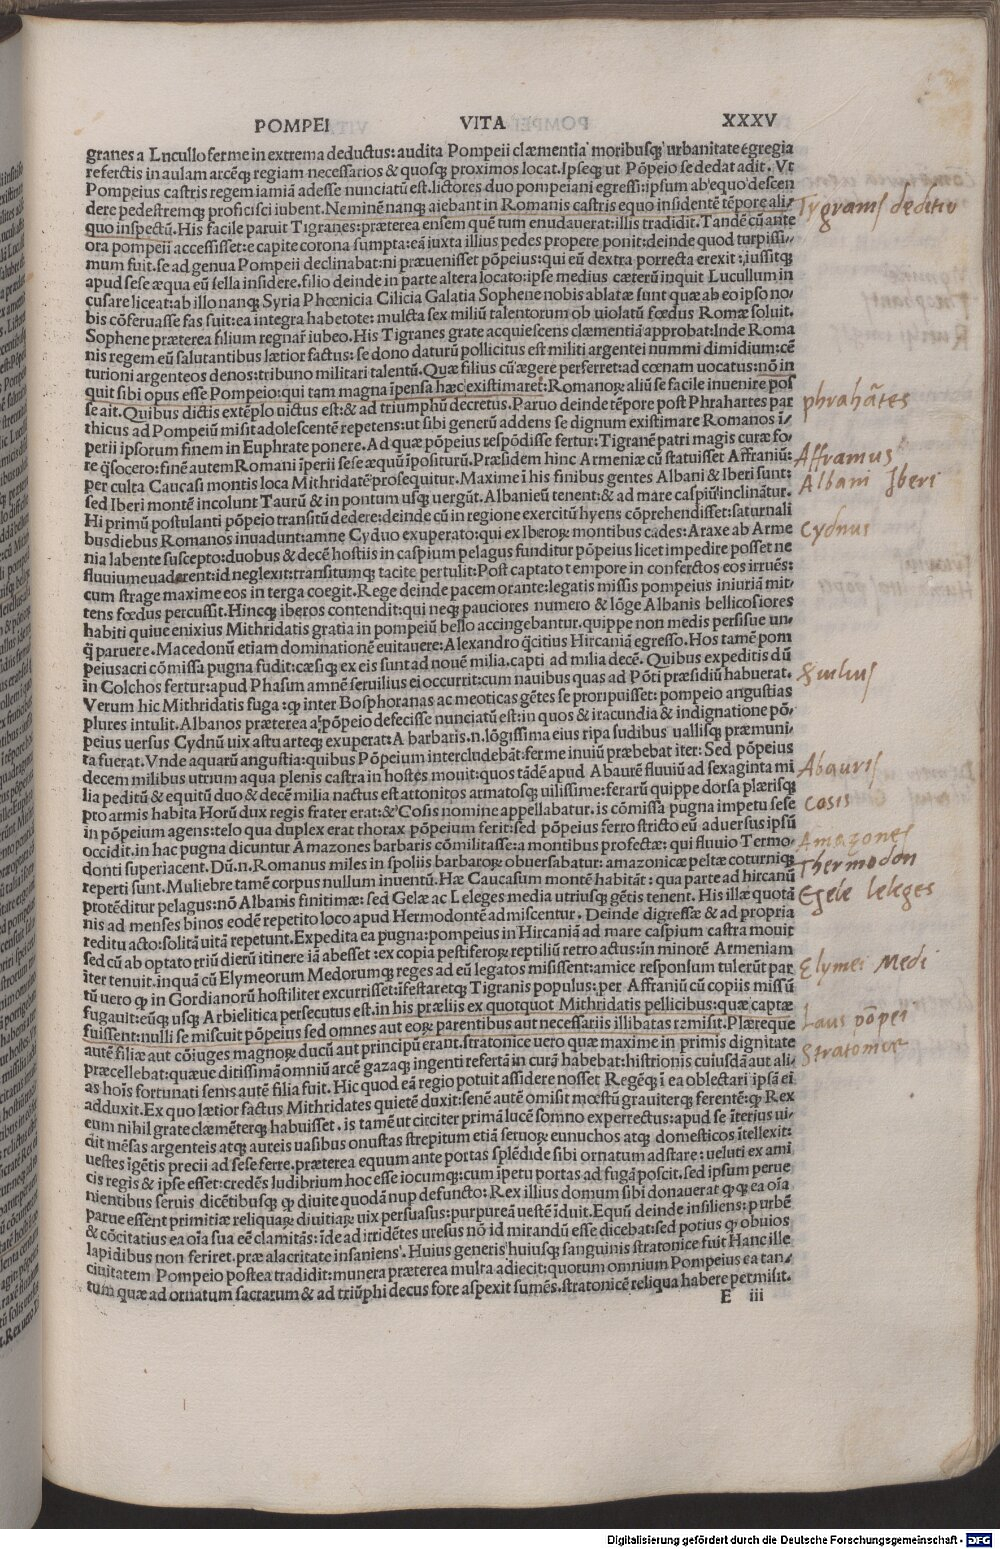 POMPEI VITA XXXV
granes a Lucullo ferme in extrema deductus: audita Pompeii clæmentia moribusq; urbanitate egregia
referctis in aulam arcẽq; regiam necessarios & quosq; proximos locat. Ipseq; ut Põpeio se dedat adit. Vt
Pompeius castris regem iamiã adesse nunciatũ est. lictores duo pompeiani egressi: ipsum ab equo descen
dere pedestremq; proficisci iubent. Neminẽ nanq; aiebant in Romanis castris equo insidentẽ tẽpore ali/
quo inspectũ. His facile paruit Tigranes: præterea ensem quẽ tum enudauerat: illis tradidit. Tandẽ cũ ante
ora pompeii accessisset: e capite corona sumpta: eã iuxta illius pedes propere ponit: deinde quod turpissi/
mum fuit. se ad genua Pompeii declinabat: ni præuenisset põpeius: qui eũ dextra porrecta erexit: iussitq;
apud sese æqua eũ sella insidere. filio deinde in parte altera locato: ipse medius cæterũ inquit Lucullum in
cusare liceat: ab illo nanq; Syria Phœnicia Cilicia Galatia Sophene nobis ablatæ sunt quæ ab eo ipso no/
bis cõseruasse fas suit: ea integra habetote: mulcta sex miliũ talentorum ob uiolatũ fœdus Romæ soluit.
Sophene præterea filium regnar̃ iubeo. His Tigranes grate acquiescens clæmentiã approbat: Inde Roma
nis regem eũ salutantibus lætior factus: se dono daturũ pollicitus est militi argentei nummi dimidium: cẽ
turioni argenteos denos: tribuno militari talentũ. Quæ filius cũ ægere perferret: ad cœnam uocatus: nõ in
quit sibi opus esse Pompeio: qui tam magna ĩpensa hæc existimaret: Romanoꝝ aliũ se facile inuenire pos
se ait. Quibus dictis extẽplo uictus est: & ad triumphũ decretus. Paruo deinde tẽpore post Phrahartes par
thicus ad Pompeiũ misit adolescentẽ repetens: ut sibi generũ addens se dignum existimare Romanos ĩ/
perii ipsorum finem in Euphrate ponere. Ad quæ põpeius respõdisse fertur: Tigranẽ patri magis curæ fo/
re q̃ socero: finẽ autem Romani ĩperii sese æquũ ĩpositurũ. Præsidem hinc Armeniæ cũ statuisset Affraniũ:
per culta Caucasi montis loca Mithridatẽ prosequitur. Maxime ĩ his finibus gentes Albani & Iberi sunt:
sed Iberi montẽ incolunt Taurũ & in pontum usq; uergũt. Albani eũ tenent: & ad mare caspiũ inclinãtur.
Hi primũ postulanti põpeio transitũ dedere: deinde cũ in regione exercitũ hyens cõprehendisset: saturnali
busdiebus Romanos inuadunt: amne Cyduo exuperato: qui ex Iberoꝝ montibus cades: Araxe ab Arme
nia labente suscepto: duobus & decẽ hostiis in caspium pelagus funditur põpeius licet impedire posset ne
fluuium euaderent: id neglexit: transitumq; tacite pertulit: Post captato tempore in confertos eos irruẽs:
cum strage maxime eos in terga coegit. Rege deinde pacem orante: legatis missis pompeius iniuriã mit/
tens fœdus percussit. Hincq; iberos contendit: qui neq; pauciores numero & lõge Albanis bellicosiores
habiti quiue enixius Mithridatis gratia in pompeiũ bello accingebantur. quippe non medis persisue un/
q̃ paruere. Macedonũ etiam dominationẽ euitauere: Alexandro q̃citius Hircaniã egresso. Hos tamẽ pom
peius acri cõmissa pugna fudit: cæsiq; ex eis sunt ad nouẽ milia. capti ad milia decẽ. Quibus expeditis dũ
in Colchos fertur: apud Phasim amnẽ seruilius ei occurrit: cum nauibus quas ad Põti præsidiũ habuerat.
Verum hic Mithridatis fuga: ꝙ inter Bosphoranas ac meoticas gẽtes se proripuisset: pompeio angustias
plures intulit. Albanos præterea a põpeio defecisse nunciatũ est: in quos & iracundia & indignatione põ/
peius uersus Cydnũ uix astu arteq; exuperat: A barbaris .n. lõgissima eius ripa sudibus uallisq; præmuni/
ta fuerat. Vnde aquarũ angustia: quibus Põpeium intercludebãt: ferme inuiũ præbebat iter: Sed põpeius
decem milibus utrium aqua plenis castra in hostes mouit: quos tãdẽ apud Abaurẽ fluuiũ ad sexaginta mi
lia peditũ & equitũ duo & decẽ milia nactus est attonitos armatosq; uilissime: ferarũ quippe dorsa plærisq;
pro armis habita Horũ dux regis frater erat: & Cosis nomine appellabatur. is cõmissa pugna impetu sese
in põpeium agens: telo qua duplex erat thorax põpeium ferit: sed põpeius ferro stricto eũ aduersus ipsũ
occidit. in hac pugna dicuntur Amazones barbaris cõmilitasse: a montibus profectæ: qui fluuio Termo/
donti superiacent. Dũ .n. Romanus miles in spoliis barbaroꝝ obuersabatur: amazonicæ peltæ coturniq;
reperti sunt. Muliebre tamẽ corpus nullum inuentũ. Hæ Caucasum montẽ habitãt: qua parte ad hircanũ
protẽditur pelagus: nõ Albanis finitimæ: sed Gelæ ac Leleges media utriusq; gẽtis tenent. His illæ quotã
nis ad menses binos eodẽ repetito loco apud Hermodontẽ admiscentur. Deinde digressæ & ad propria
reditu acto: solitã uitã repetunt. Expedita ea pugna: pompeius in Hircaniã ad mare caspium castra mouit
sed cũ ab optato triũ dierũ itinere iã abesset: ex copia pestiferoꝝ reptiliũ retro actus: in minorẽ Armeniam
ĩter tenuit. in quã cũ Elymeorum Medorumq; reges ad eũ legatos misissent: amice responsum tulerũt par
tũ uero ꝙ in Gordianorũ hostiliter excurrisset: ĩfestaretq; Tigranis populus: per Affraniũ cũ copiis missũ
fugauit: eũq; usq; Arbielitica persecutus est. in his præliis ex quotquot Mithridatis pellicibus: quæ captæ
fuissent: nulli se miscuit põpeius sed omnes aut eoꝝ parentibus aut necessariis illibatas remisit. Plæreque
autẽ filiæ aut cõiuges magnoꝝ ducũ aut principũ erant. stratonice uero quæ maxime in primis dignitate
præcellebat: quæue ditissimã omniũ arcẽ gazaq; ingenti refertã in curã habebat: histrionis cuiusdã aut ali/
as hoĩs fortunati senis autẽ filia fuit. Hic quod eã regio potuit assidere nosset Regẽq; ĩ ea oblectari ipsã ei
adduxit. Ex quo lætior factus Mithridates quietẽ duxit: senẽ autẽ omisit mœstũ grauiterq; ferentẽ: ꝙ Rex
eum nihil grate clæmẽterq; habuisset. is tamẽ ut circiter primã lucẽ somno experrectus: apud se ĩterius ui/
dit mẽsas argenteis atq; aureis uasibus onustas strepitum etiã seruoꝝ eunuchos atq; domesticos ĩtellexit:
uestes ĩgẽtis precii ad sese ferre. præterea equum ante portas splẽdide sibi ornatum adstare: ueluti ex ami
cis regis & ipse esset: credẽs ludibrium hoc esse iocumq;: cum ĩpetu portas ad fugã poscit. sed ipsum perue
nientibus seruis dicẽtibusq; ꝙ diuite quodã nup defuncto: Rex illius domum sibi donauerat ꝙq; ea oĩa
parue essent primitiæ reliquaꝝ diuitiaꝝ uix persuasus: purpureã uestẽ ĩduit. Equũ deinde insiliens: p urbẽ
& cõcitatius ea oĩa sua eẽ clamitãs: ĩde ad irridẽtes uersus nõ id mirandũ esse dicebat: sed potius ꝙ obuios
lapidibus non feriret. præ alacritate insaniens. Huius generis huiusq; sanguinis stratonice fuit Hanc ille
ciuitatem Pompeio postea tradidit: munera præterea multa adiecit: quorum omnium Pompeius ea tan/
tum quæ ad ornatum sacrarum & ad triũphi decus fore aspexit sumẽs. stratonicẽ reliqua habere permisit.
E iii
Tygranis deditio
phrahãtes
Afframus
Albani Iberi
Cydnus
Abauris
cosis
Amazones
Thermodon
Egele leleges
Elymei Medi
Laus põpei
Stratonicæ
Digitalisierung gefördert durch die Deutsche Forschungsgemeinschaft - DFG